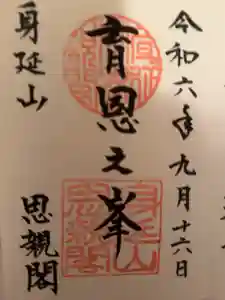 令和六年九月十六日
育恩之峯
身延山
思親閣